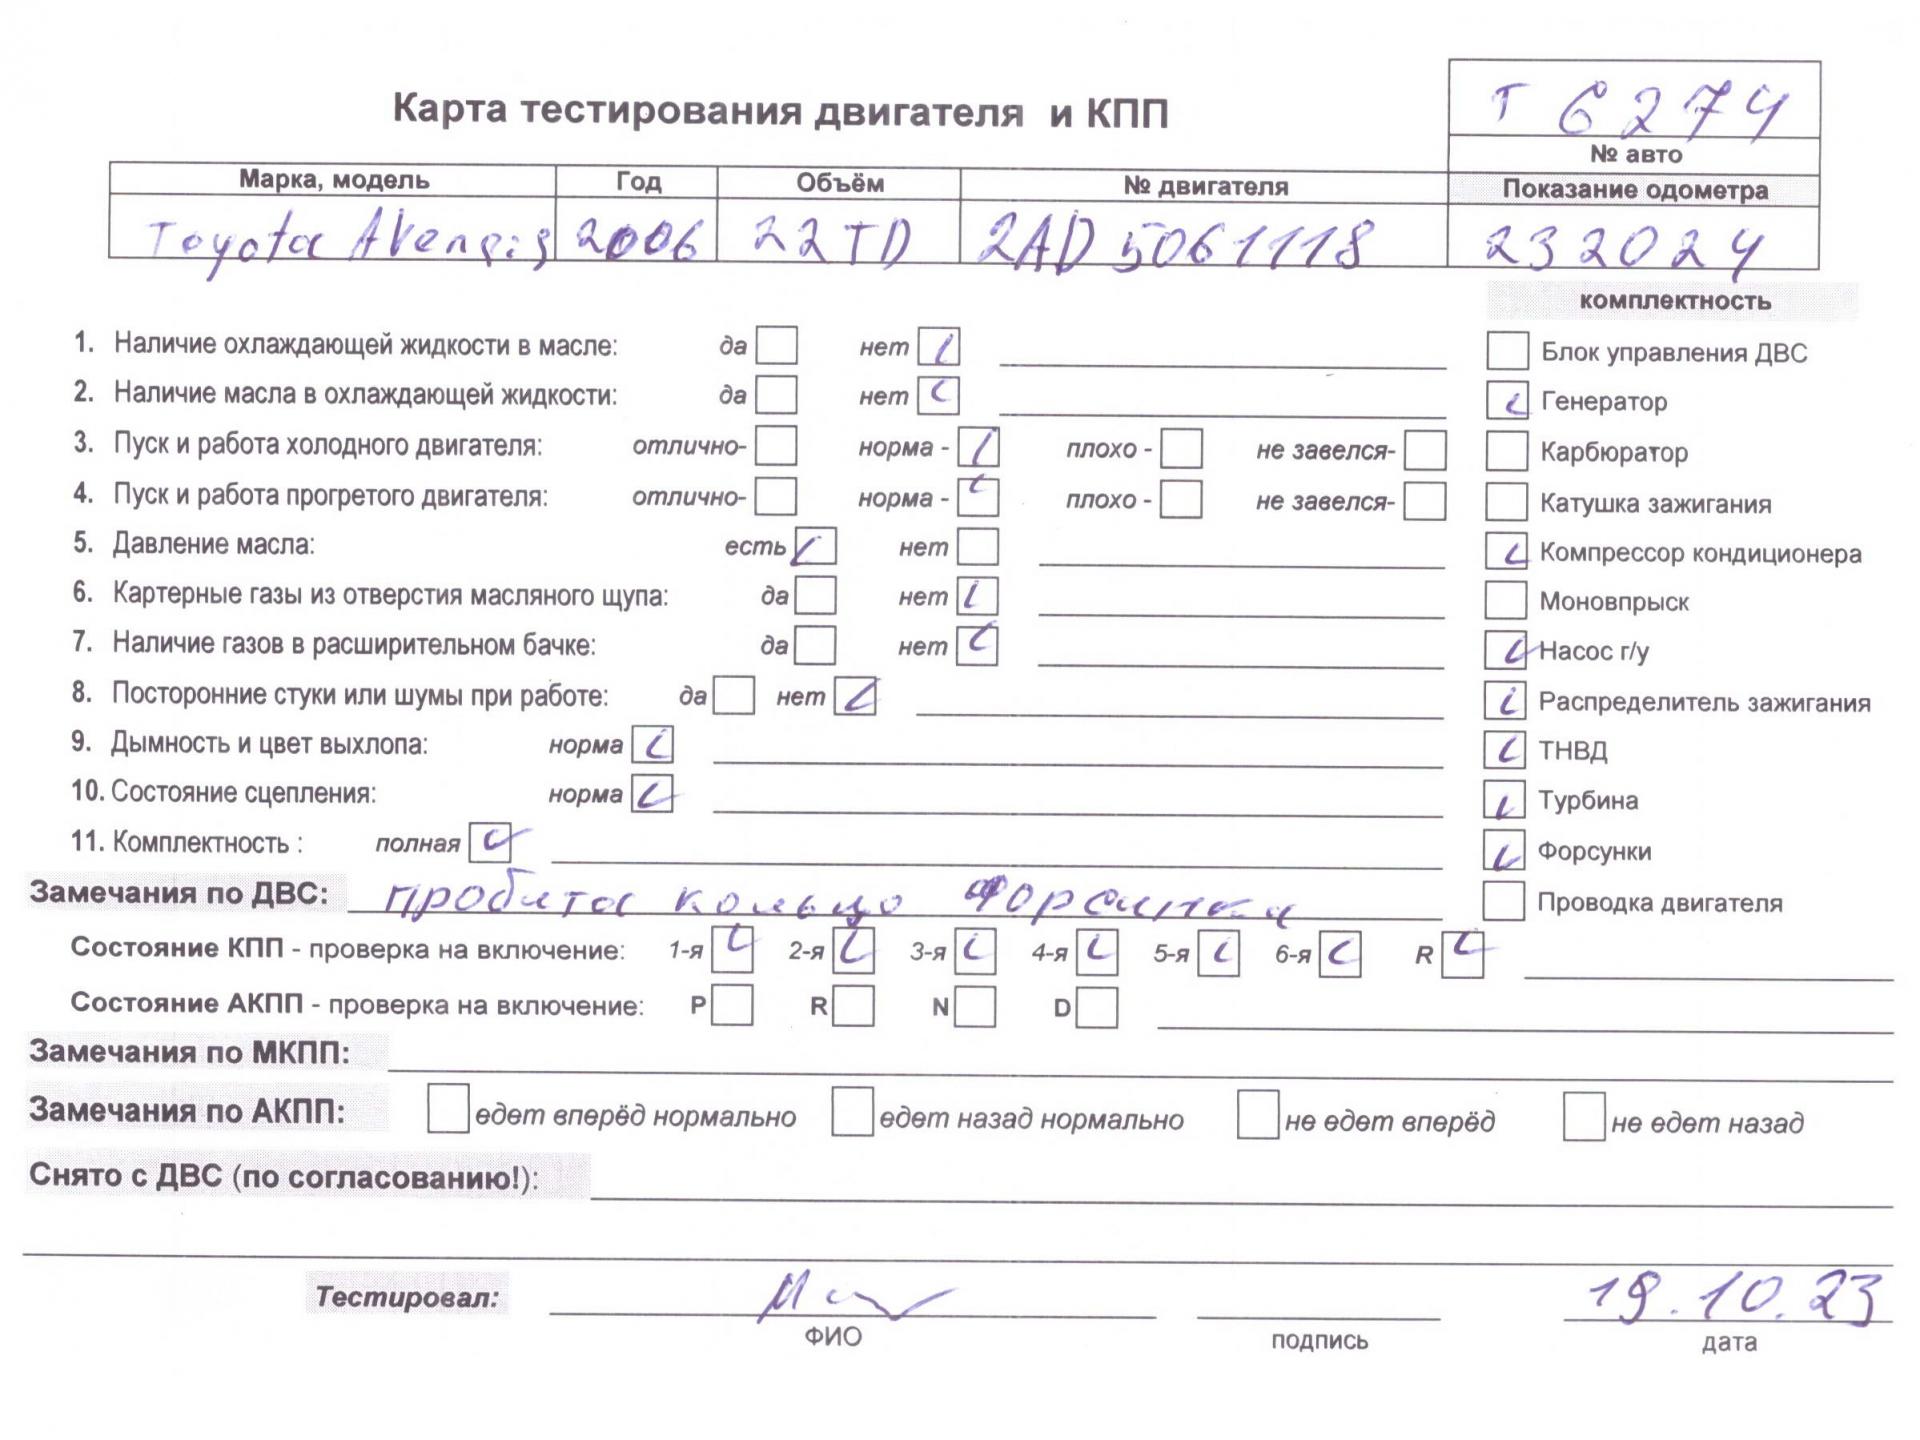 Т 6274
Карта тестирования двигателя и КПП
№ авто
Марка, модель Год Объём № двигателя Показание одометра
Toyota Avensis 2006 22TD 2AD 5061118 232024
комплектность
1. Наличие охлаждающей жидкости в масле: да нет
Блок управления ДВС
2. Наличие масла в охлаждающей жидкости: да нет
Генератор
3. Пуск и работа холодного двигателя: отлично- норма - плохо - не завелся-
Карбюратор
4. Пуск и работа прогретого двигателя: отлично- норма - плохо - не завелся-
Катушка зажигания
5. Давление масла: есть нет
Компрессор кондиционера
6. Картерные газы из отверстия масляного щупа: да нет
Моновпрыск
7. Наличие газов в расширительном бачке: да нет
Насос г/у
8. Посторонние стуки или шумы при работе: да нет
Распределитель зажигания
9. Дымность и цвет выхлопа: норма
ТНВД
10. Состояние сцепления: норма
Турбина
11. Комплектность : полная
Форсунки
Замечания по ДВС: пробита кольцо форсунки
Проводка двигателя
Состояние КПП - проверка на включение: 1-я 2-я 3-я 4-я 5-я 6-я R
Состояние АКПП - проверка на включение: P R N D
Замечания по МКПП:
Замечания по АКПП: едет вперёд нормально едет назад нормально не едет вперёд не едет назад
Снято с ДВС (по согласованию!):
Тестировал: 19.10.23
ФИО подпись дата